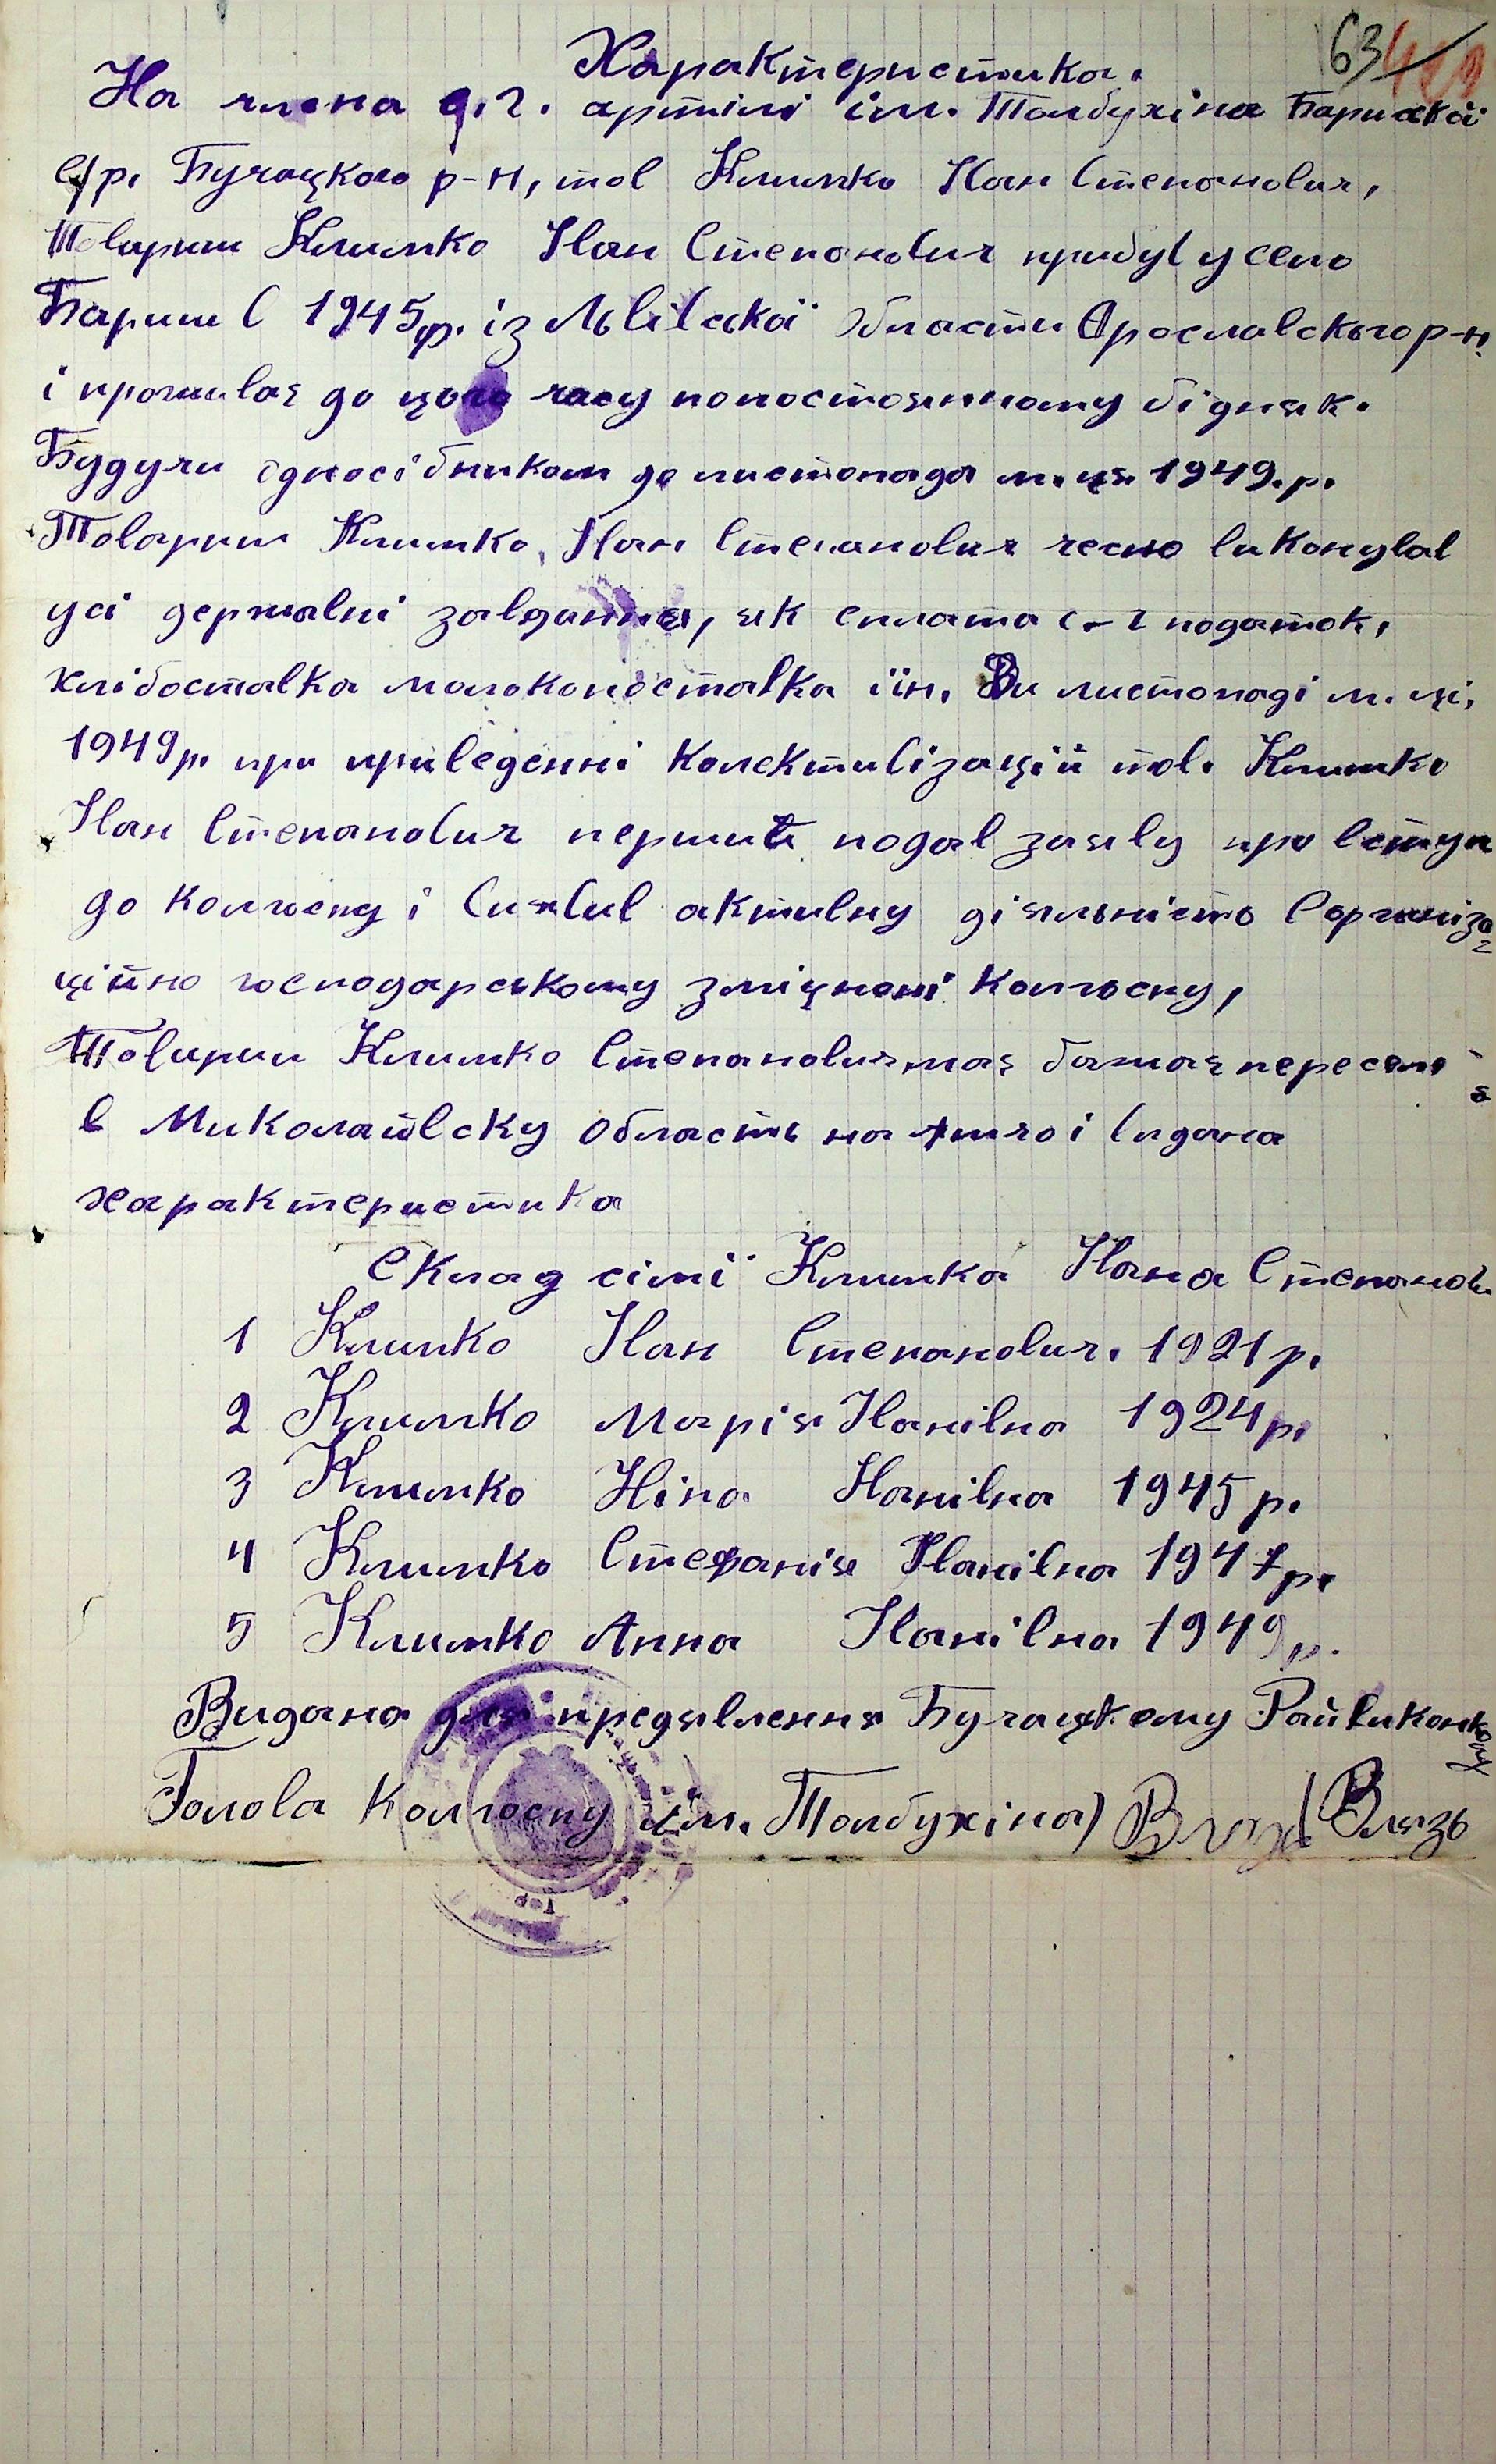 63
Характеристика.
На члена с.г. артілі ім. Толбухіна Бариской
с/р. Бучацкого р-н, тов Климко Іван Степанович,
Товариш Климко Іван Степанович прибув у село
Бариш в 1945р. із Львівскої области Ярославського р-н.
і проживає до цього часу попостоянному бідняк.
Будучи єдносібником до листопада м.ця. 1949.р.
Товариш Климко, Іван Степанович чесно виконував
усі державні завдання, як сплата с-г податок,
хлібоставка молокопоставка іін. Ви листопаді м. ці,
1949р. при приведенні колективізаціи тов. Климко
Іван Степанович перший подав заяву про вступ
до колгоспу і виявив активну діяльність в організа
ційно господарському зміцнені колгоспу,
Товариш Климко Степанович має бажає пересел
в Миколаівску область на що і видана
характеристика
Склад сімї Климка Івана Степанов
1 Климко Іван Степанович. 1921р.
2 Климко Марія Іванівна 1924р.
3 Климко Ніна Іванівна 1945р.
4 Климко Стефанія Іванівна 1947р.
5 Климко Анна Іванівна 1949р.
Видана для предявлення Бучацкому Райвиконкому
Голова колгоспу ім. Толбухіна) Вязь